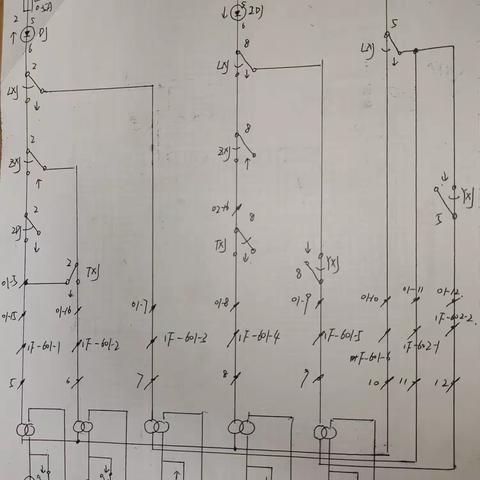 0.5A
2
5
DJ
6
2
LXJ
2
ZXJ
2
ZDJ
01-5
2
TXJ
01-15
01-16
1F-601-1
1F-601-2
5
6
01-7
1F-601-3
7
5
2DJ
6
8
LXJ
8
ZXJ
02-16
8
TXJ
01-8
1F-601-4
8
YXJ
8
01-9
1F-601-5
9
5
LXJ
YXJ
5
01-10
01-11
01-12
1F-602-2
1F-601-6
1F-602-1
10
11
12